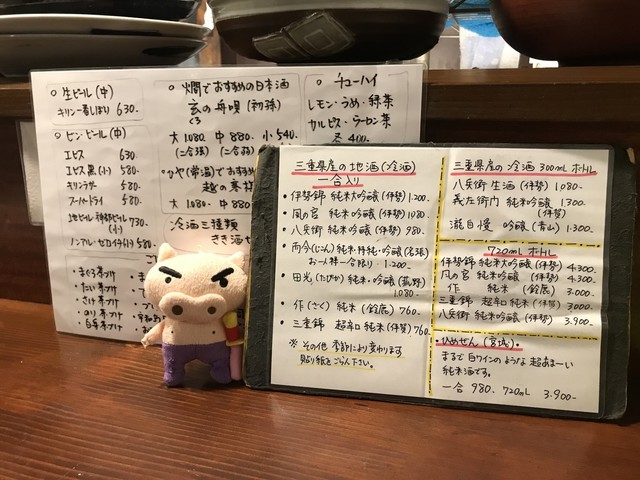 ○ 生ビール(中)
キリン一番しぼり 630.
○ ビン・ビール(中)
エビス 630
エビス黒(小) 580
キリンラガー 580
スーパードライ 580
730
ノンアル・ゼロイチ(小) 580
・まぐろ
・たい
・さけ
・のり
○ 燗でおすすめの日本酒
玄の舟唄(初孫)
くろ
大 1080. 中 880. 小 540.
(二合弱)
○ひや(常温)でおすすめ
越の寒
大 1080 中 880
冷酒三種類
きき酒セ
○ チューハイ
レモン・うめ・緑茶
カルピス・ウーロン茶
400.
三重県産の地酒(冷酒)
一合入り
・伊勢錦 純米大吟醸(伊勢) 1.200-
・風の宮 純米吟醸(伊勢) 1080.
・八兵衛 純米吟醸(伊勢) 980.
・而今(じこん) 純米・特純・吟醸(名張)
お一人様一合限り 1.200-
・田光(たびか) 純米吟醸(菰野)
1080.
・作(ざく) 純米(鈴鹿) 760.
・三重錦 超辛口 純米(伊勢) 760.
※ その他 季節により変わります
貼り紙をごらん下さい。
三重県産の冷酒 300ml ボトル
八兵衛 生酒(伊勢) 1080-
義左衛門 純米吟醸 1300-
(伊賀)
瀧自慢 吟醸(青山) 1.300-
720ml ボトル
伊勢錦 純米大吟醸(伊勢) 4.300-
風の宮 純米吟醸(伊勢) 4.300
作 純米(鈴鹿) 3.000-
三重錦 超辛口 純米(伊勢) 3000-
八兵衛 純米吟醸(伊勢) 3.900-
・ひめぜん(宮城)。
まるで白ワインのような超あまーい
純米酒です。
一合 980、720ml 3.900-